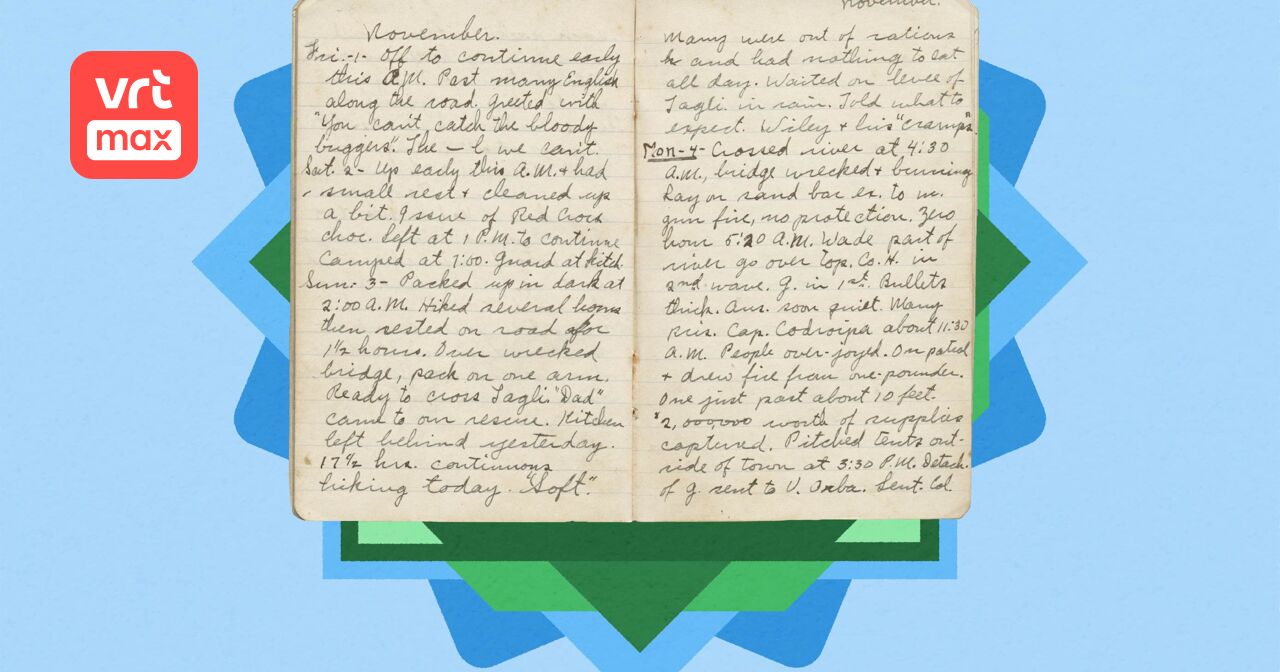 vrt
max
November.
Fri.-1- Off to continue early
this A.M. Past many English
along the road. Greeted with
"You can't catch the bloody
buggers". The — l we can't.
Sat. 2- Up early this A.M. + had
small rest + cleaned up
a bit. Issue of Red Cross
choc. Left at 1 P.M. to continue
Camped at 7:00. Guard at kitch.
Sun. 3- Packed up in dark at
2:00 A.M. Hiked several hours
then rested on road after
1½ hours. Over wrecked
bridge, pack on one arm.
Ready to cross Tagli. "Dad"
came to our rescue. Kitchen
left behind yesterday.
17½ hrs. continuous
hiking today. "Soft."
November.
Many were out of rations
and had nothing to eat
all day. Waited on levee of
Tagli. in rain. Told what to
expect. Wiley + his "cramps".
Mon-4- Crossed river at 4:30
A.M., bridge wrecked + burning
Lay on sand bar ex. to m.
gun fire, no protection. Zero
hour 5:20 A.M. Wade part of
river go over top. Co. H. in
2nd wave. G. in 1st. Bullets
thick. Aus. soon quiet. Many
pris. Cap. Codroipa about 11:30
A.M. People over-joyed. On patrol
+ drew fire from one-pounder.
One just past about 10 feet.
$2,000,000 worth of supplies
captured. Pitched tents out-
side of town at 3:30 P.M. Detach.
of G. sent to V. Orba. Lieut. Col.